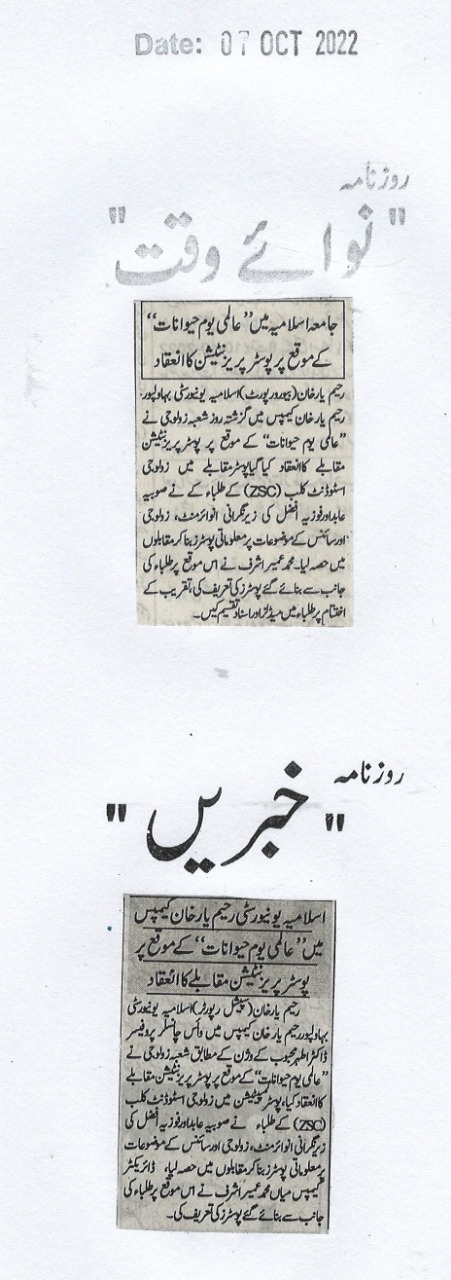 Date: 07 OCT 2022
روزنامہ
"نوائے وقت"
جامعہ اسلامیہ میں ’’عالمی یوم حیوانات‘‘
کے موقع پر پوسٹر پریزنٹیشن کا انعقاد
رحیم یار خان (بیورو رپورٹ) اسلامیہ یونیورسٹی بہاولپور
رحیم یار خان کیمپس میں گزشتہ روز شعبہ زولوجی نے
’’عالمی یوم حیوانات‘‘ کے موقع پر پوسٹر پریزنٹیشن
مقابلے کا انعقاد کیا گیا پوسٹر مقابلے میں زولوجی
اسٹوڈنٹ کلب (ZSC) کے طلباء کے نے صوبیہ
عابد اور فوزیہ افضل کی زیر نگرانی انوائرمنٹ، زولوجی
اور سائنس کے موضوعات پر معلوماتی پوسٹرز بنا کر مقابلوں
میں حصہ لیا۔ محمد عمیر اشرف نے اس موقع پر طلباء کی
جانب سے بنائے گئے پوسٹرز کی تعریف کی، تقریب کے
اختتام پر طلباء میں میڈلز اور اسناد تقسیم کیں۔
روزنامہ
"خبریں"
اسلامیہ یونیورسٹی رحیم یار خان کیمپس
میں ’’عالمی یوم حیوانات‘‘ کے موقع پر
پوسٹر پریزنٹیشن مقابلے کا انعقاد
رحیم یار خان (سپیشل رپورٹر) اسلامیہ یونیورسٹی
بہاولپور رحیم یار خان کیمپس میں وائس چانسلر پروفیسر
ڈاکٹر اطہر محبوب کے وژن کے مطابق شعبہ زولوجی نے
’’عالمی یوم حیوانات‘‘ کے موقع پر پوسٹر پریزنٹیشن مقابلے
کا انعقاد کیا، پوسٹر میں زولوجی اسٹوڈنٹ کلب
(ZSC) کے طلباء نے صوبیہ عابد اور فوزیہ افضل کی
زیر نگرانی انوائرمنٹ، زولوجی اور سائنس کے موضوعات
پر معلوماتی پوسٹرز بنا کر مقابلوں میں حصہ لیا، ڈائریکٹر
کیمپس میاں محمد عمیر اشرف نے اس موقع پر طلباء کی
جانب سے بنائے گئے پوسٹرز کی تعریف کی۔